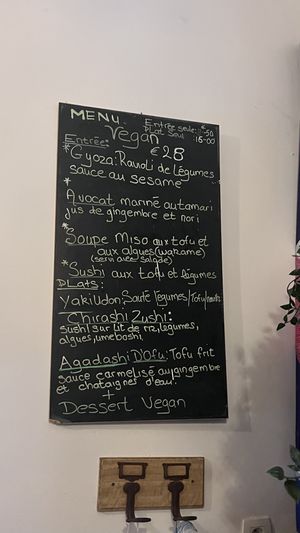 MENU
Vegan
Entrée seule: €-50
Plat seul :16-00
Entrée: €28
*Gyoza: Ravioli de Légumes
sauce au sesame
*
Avocat mariné autamari
jus de gingembre et nori
*Soupe Miso aux tofu et
aux algues (wakame)
(servi avec salade)
*Sushi aux tofu et légumes
PLats:
Yakiudon: Sauté légumes/Tofu/
Chirashi Zushi:
sushi sur lit de riz, legumes,
algues, umeboshi.
Agadashi D'Ofu: Tofu frit
sauce carmelisé au gingembre
et chataignes d'eau.
+
Dessert Vegan